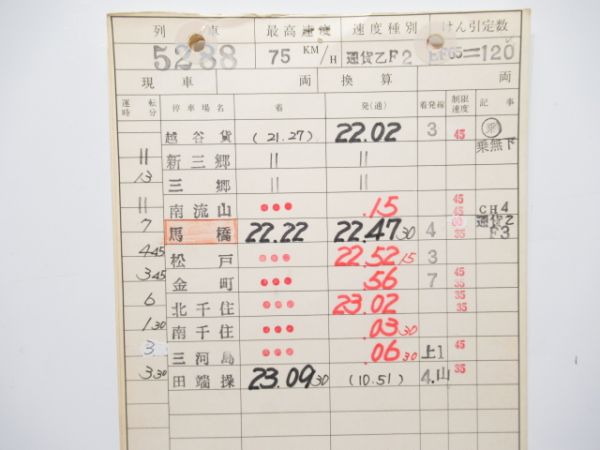 列 車 最高速度 速度種別 けん引定数
5288 75 KM/H 通貨乙F2 EF65=120
現 車 両 換 算 両
運転時分 停車場名 着 発(通) 着発線 制限速度 記 事
越谷貨 (21.27) 22.02 3 45 乗
11 新三郷 〃 〃 乗無下
13 三郷 〃 〃
11 南流山 ••• .15 45 45 CH4
7 馬橋 22.22 22.47 30 4 60 35 通貨乙F3
4 45 松戸 ••• 22.52 15 3
3 45 金町 ••• .56 7 45 35
6 北千住 ••• 23.02 35
1 30 南千住 ••• .03 30
3 三河島 ••• .06 30 上1 45
3 30 田端操 23.09 30 (10.51) 4.山 35